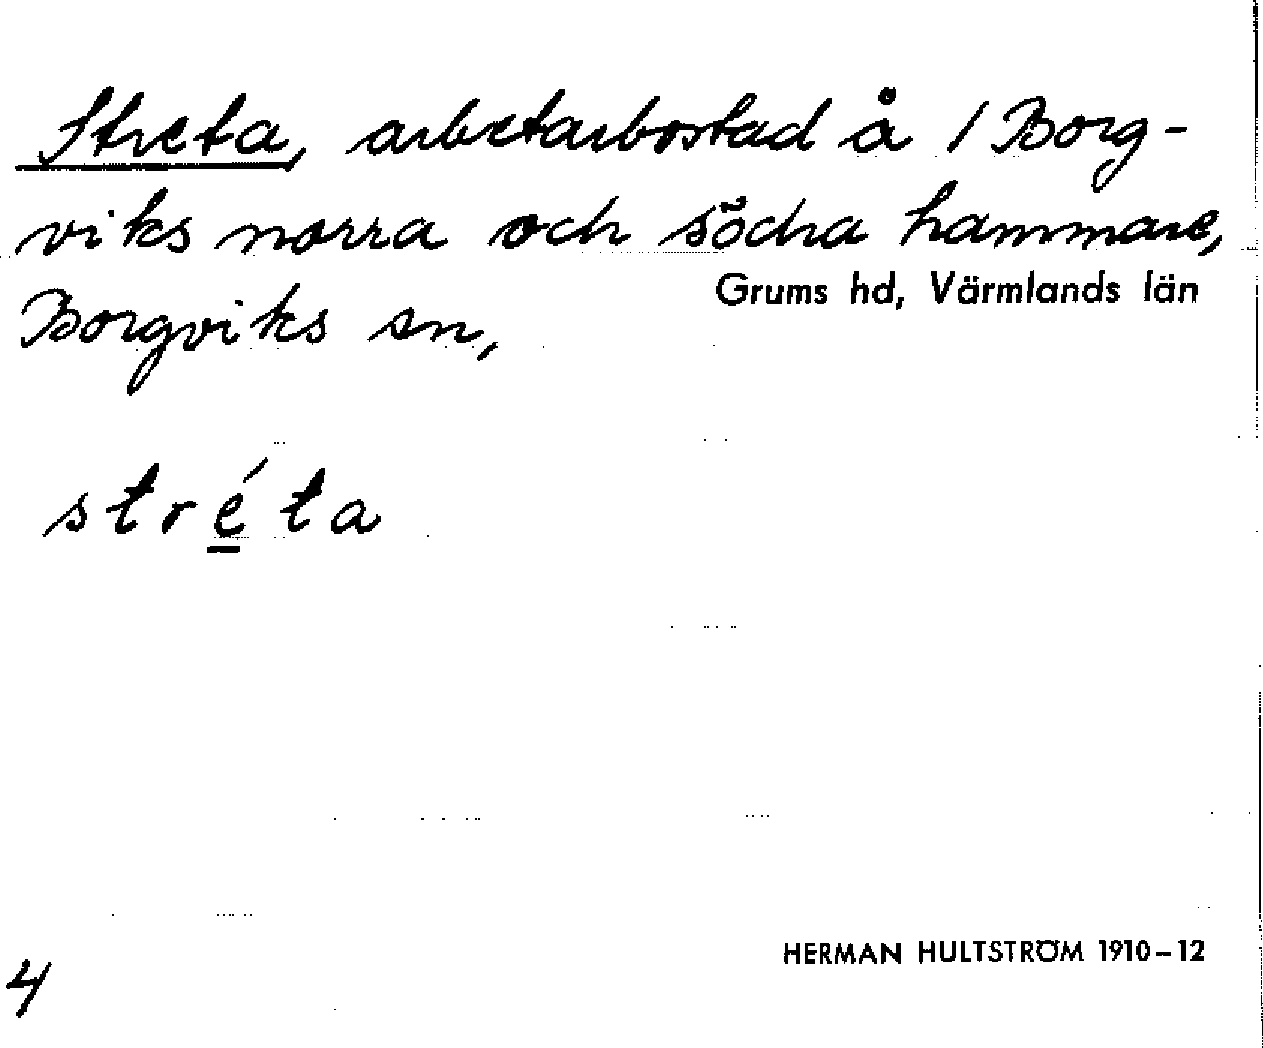 Streta, arbetarbostad å / Borg-
viks norra och södra hammare,
Grums hd, Värmlands län
Borgviks sn,
stréta
HERMAN HULTSTRÖM 1910–12
4